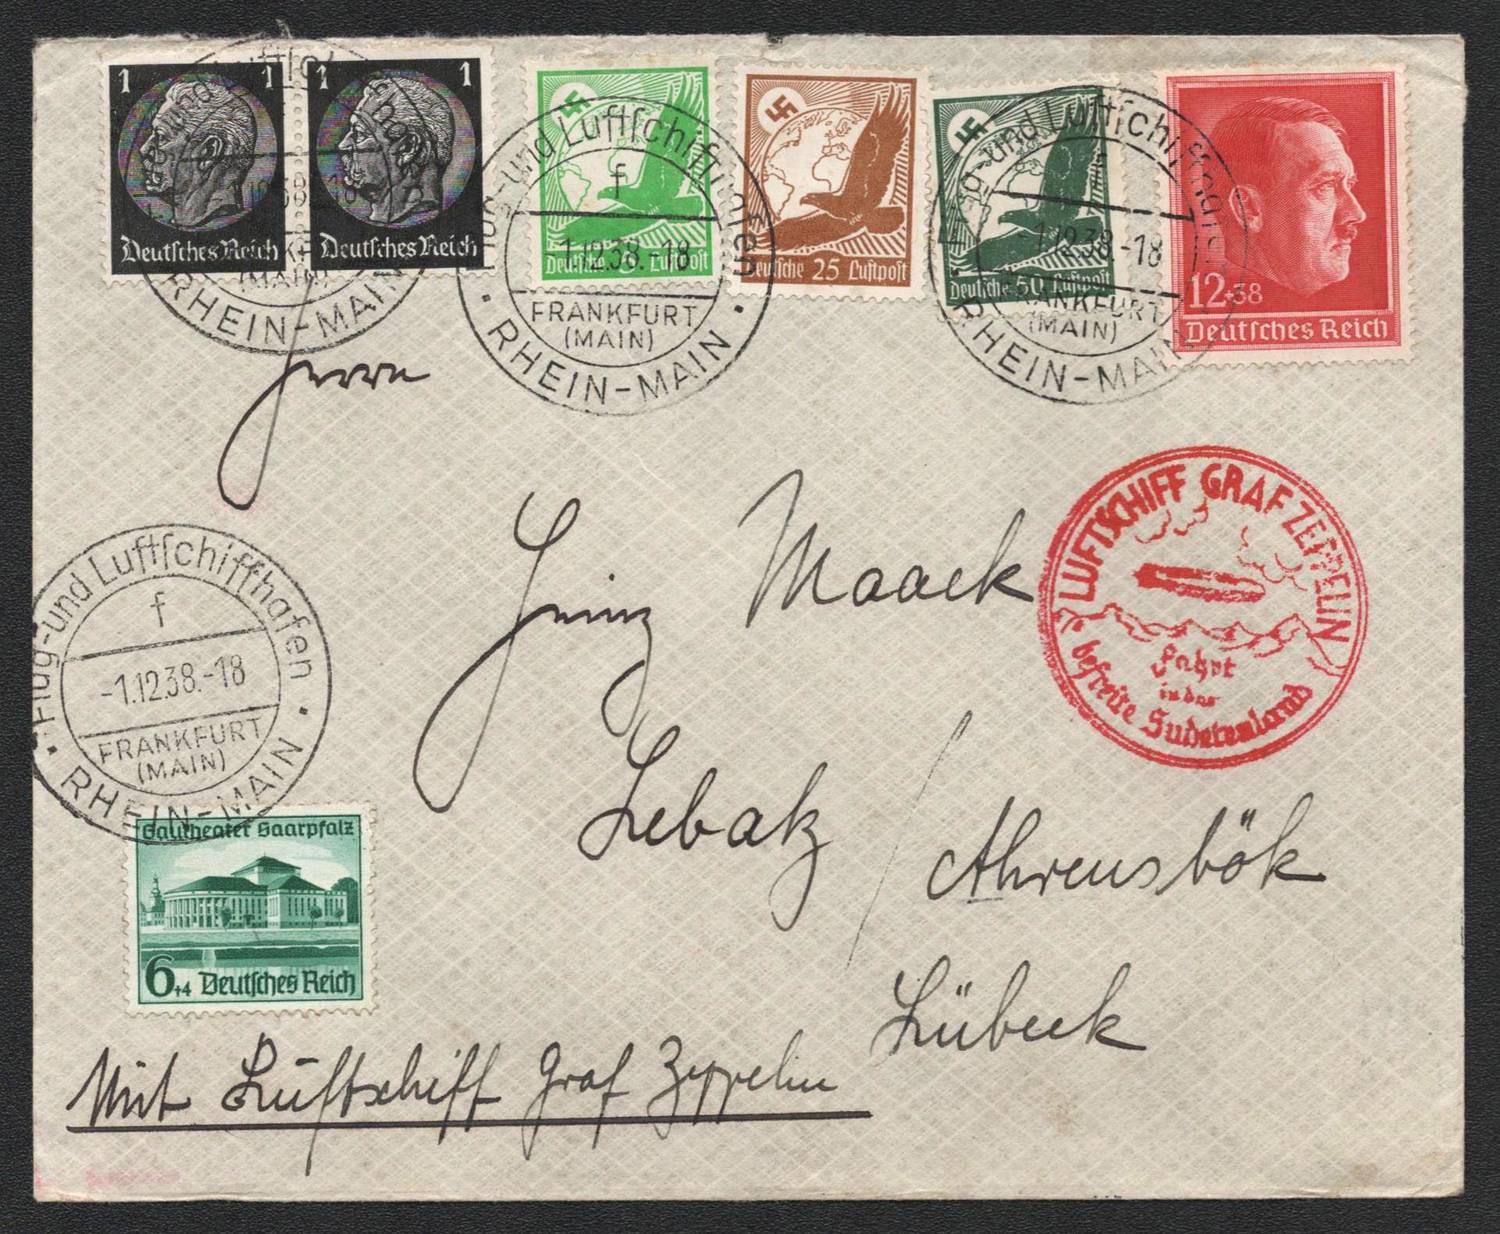 1 1
Deutsches Reich
1 1
Deutsches Reich
Deutsche Luftpost
Deutsche 25 Luftpost
Deutsche 50 Luftpost
12+38
Deutsches Reich
RHEIN-MAIN
Flug-und Luftschiffhafen
f
-1.12.38.-18
FRANKFURT
(MAIN)
RHEIN-MAIN
Flug-und Luftschiffhafen
-1.12.38.-18
FRANKFURT
(MAIN)
RHEIN-MAIN
Herrn
Heinz Maack
Lebatz / Ahrensbök
Lübeck
LUFTSCHIFF GRAF ZEPPELIN
Fahrt
in das
befreite Sudetenland
Flug-und Luftschiffhafen
f
-1.12.38.-18
FRANKFURT
(MAIN)
RHEIN-MAIN
Gautheater Saarpfalz
6+4 Deutsches Reich
Mit Luftschiff Graf Zeppelin